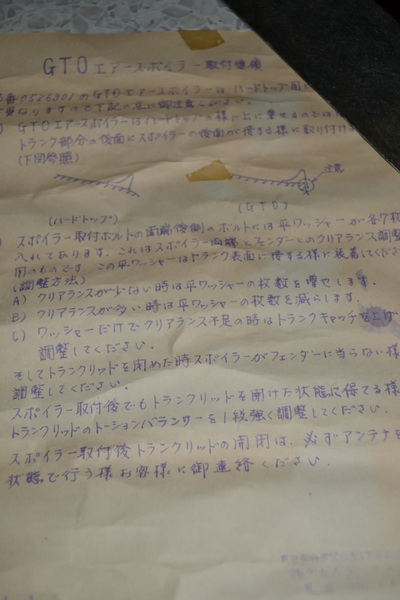 GTOエアースポイラー取付連絡
番0526301のGTOエアースポイラーは ハードトップ用と
異なりますので下記の点に御注意ください。
GTOエアースポイラーはハードトップの様に上に乗せるのではなく
トランク部分の後面にスポイラーの後面が接する様に取り付けます
(下図参照)
注意
(ハードトップ)
(GTO)
スポイラー取付ボルトの両端後側のボルトには平ワッシャーが各7枚
入れてあります。これはスポイラー両端とフェンダーとのクリアランス調整
用のものです。この平ワッシャーはトランク表面に接する様に装着してください
(調整方法)
A) クリアランスが少ない時は平ワッシャーの枚数を増せします。
B) クリアランスが多い時は平ワッシャーの枚数を減らします。
C) ワッシャーだけでクリアランス不足の時はトランクキャッチを上げ
調整してください。
そしてトランクリッドを閉めた時スポイラーがフェンダーに当らない様
調整してください。
スポイラー取付後でもトランクリッドを開けた状態に保てる様
トランクリッドのトーションバランサーを1段強く調整してください。
スポイラー取付後トランクリッドの開閉は、必ずアンテナを
状態で行う様お客様に御連絡ください。